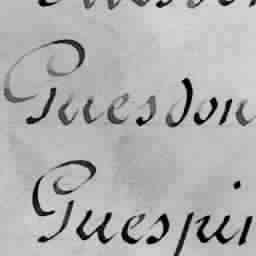 Guesdon
Guespin